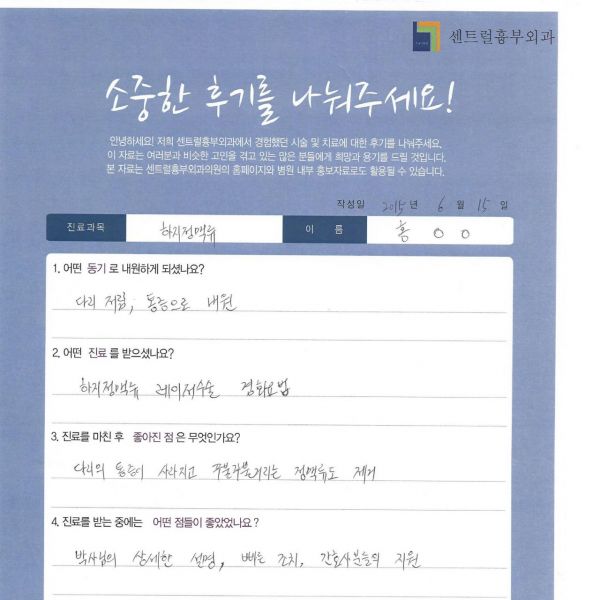 센트럴흉부외과
소중한 후기를 나눠주세요!
안녕하세요! 저희 센트럴흉부외과에서 경험했던 시술 및 치료에 대한 후기를 나눠주세요.
이 자료는 여러분과 비슷한 고민을 겪고 있는 많은 분들에게 희망과 용기를 드릴 것입니다.
본 자료는 센트럴흉부외과의원의 홈페이지와 병원 내부 홍보자료로도 활용될 수 있습니다.
작성일 2015 년 6 월 15 일
진료과목 하지정맥류 이 름 홍 O O
1. 어떤 동기 로 내원하게 되셨나요?
다리 저림, 통증으로 내원
2. 어떤 진료 를 받으셨나요?
하지정맥류 레이저수술 경화요법
3. 진료를 마친 후 좋아진 점 은 무엇인가요?
다리의 통증이 사라지고 꾸불꾸불거리는 정맥류도 제거
4. 진료를 받는 중에는 어떤 점들이 좋았었나요?
박사님의 상세한 설명, 빠른 조치, 간호사분들의 지원